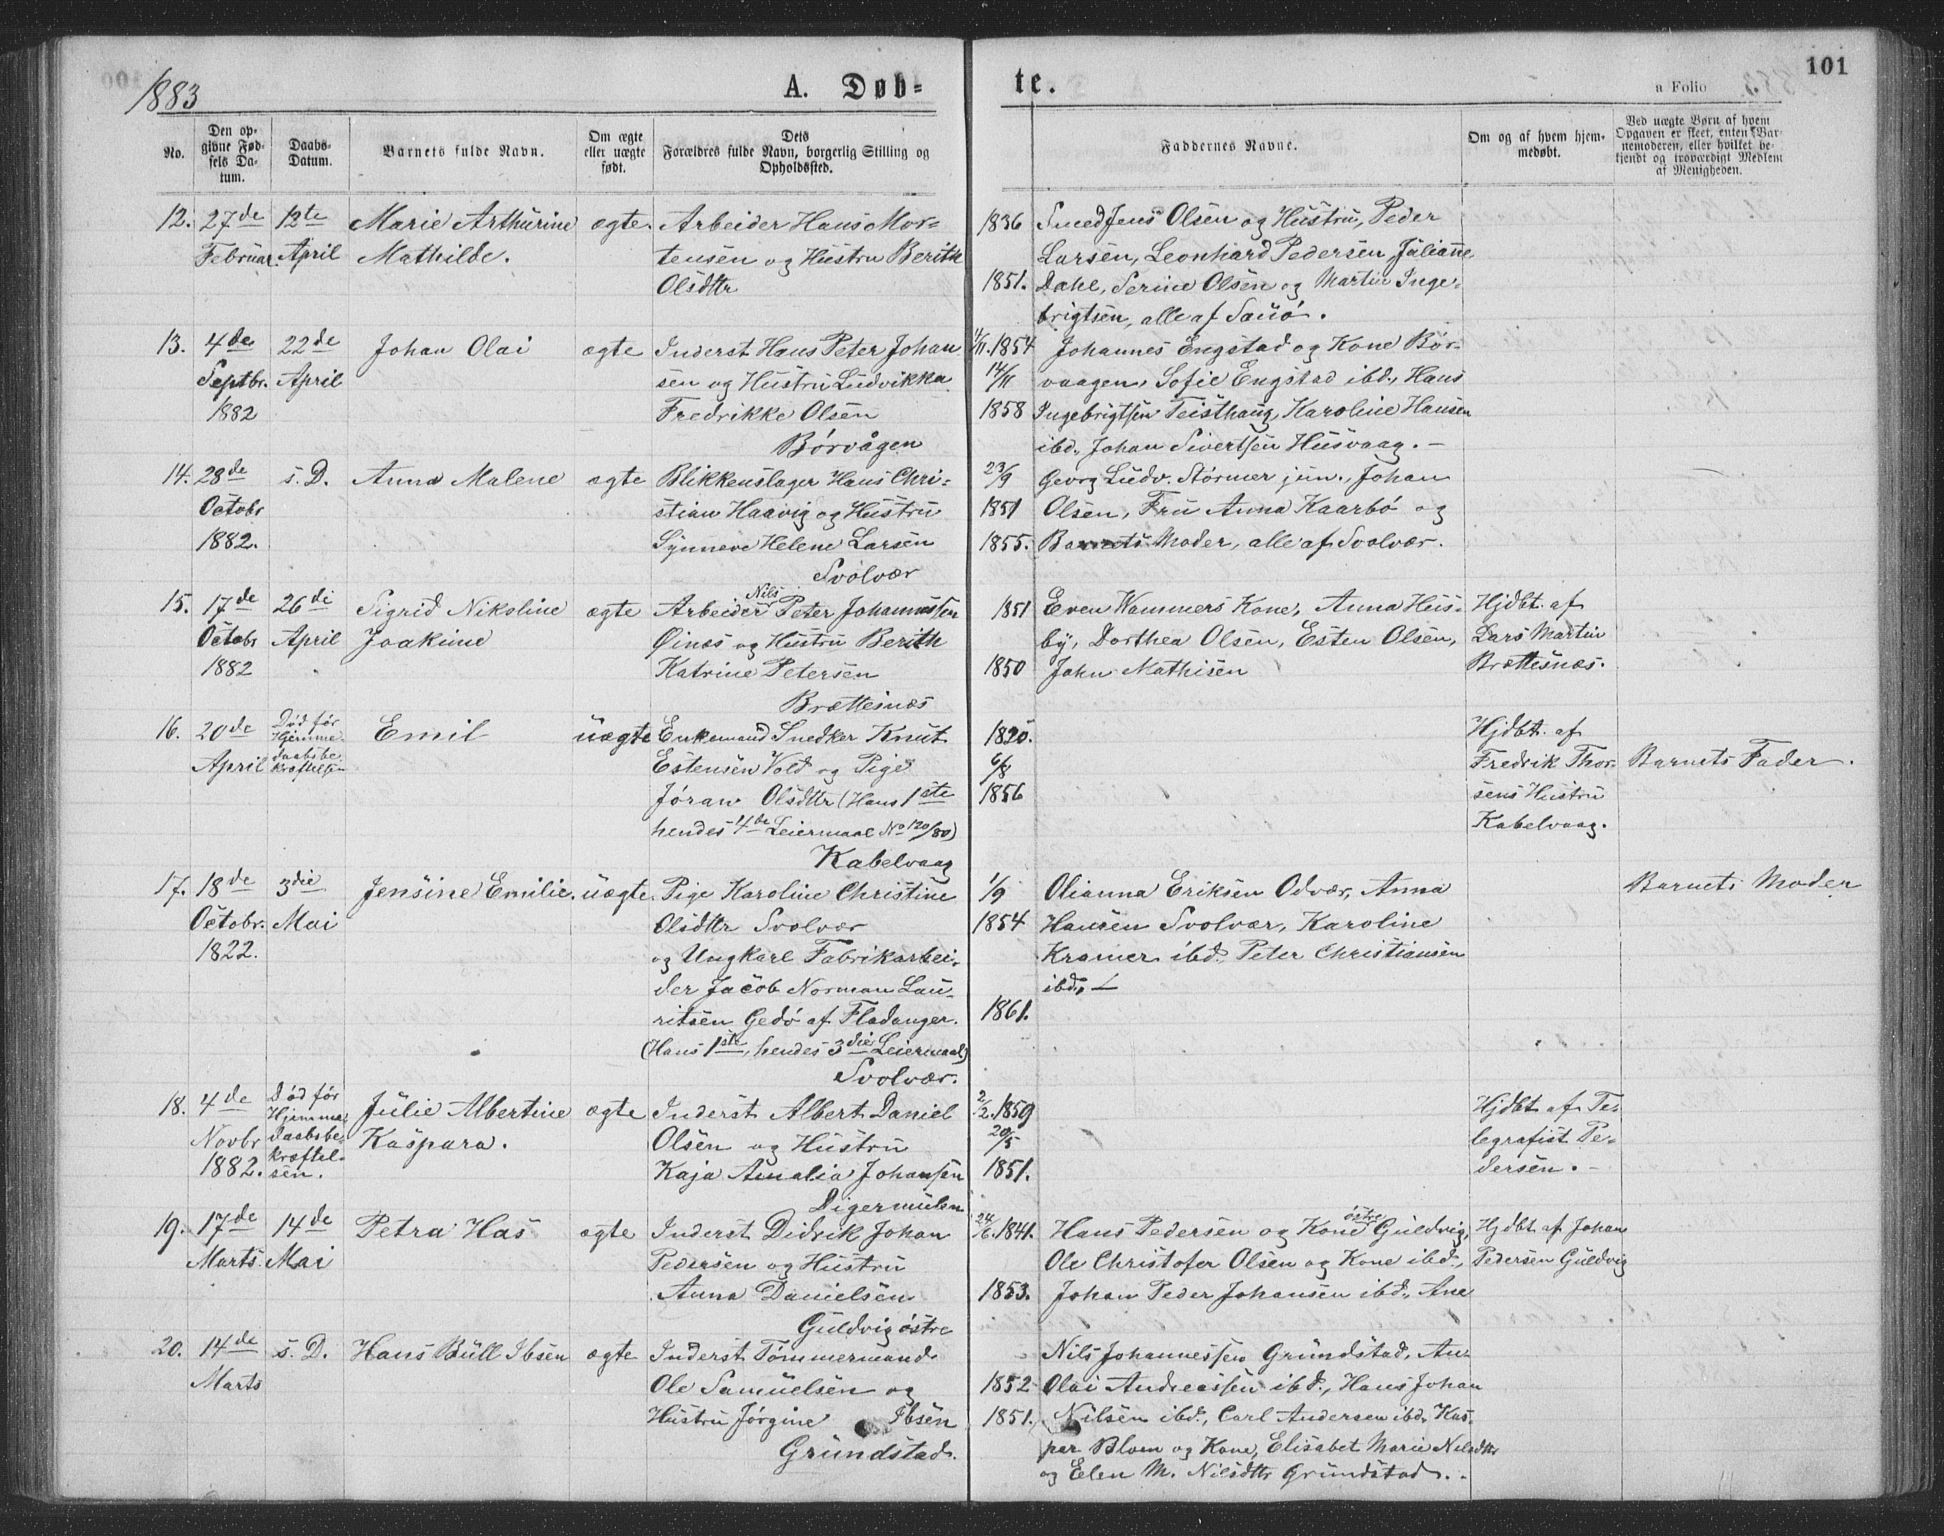 1883
A. Døb-
te.
a Folio
101
No.
Den op-
givne Fød-
sels Da-
tum.
Daabs-
Datum.
Barnets fulde Navn.
Om ægte
eller uægte
født.
Dets
Forældres fulde Navn, borgerlig Stilling og
Opholdssted.
Faddernes Navne.
Om og af hvem hjem-
medøbt.
Ved uægte Børn af hvem
Opgaven er skeet, enten Bar-
nemoderen, eller hvilket be-
kjendt og troværdigt Medlem
af Menigheden.
12. 27de 12te Marie Arthurine ægte. Arbeider Hans Mor- 1836 Smed Jens Olsen og Hustru, Peder
Februar. April Mathilde. tensen og Hustru Berith Larsen, Leonhard Pedersen, Julianne
Olsdttr 1851. Dahl, Serine Olsen og Martin Inge-
brigtsen, alle af
13. 4de 22de Johan Olai ægte Inderst Hans Peter Johan 1/11.1854 Johannes Engstad og Kone Bør-
Septbr. April sen og Hustru Ludvikka 14/11 vaagen, Sofie Engstad ibd., Hans
1882 Fredrikke Olsen 1858 Ingebrigtsen Teisthaug, Karoline Hansen
Børvågen ibd., Johan Sivertsen Husvaag. –
14. 28de s. D. Anna Malene ægte Blikkenslager Hans Chri- 23/9 Georg Ludv. Størmer jun., Johan
Octobr stian Haavig og Hustru 1851 Olsen, Fru Anna Kaarbø og
1882. Synneve Helene Larsen 1855. Barnets Moder, alle af Svolvær.
Svolvær
15. 17de 26de Sigrid Nikoline ægte Arbeider Nils Peter Johannessen 1851 Even Wammers Kone, Anna Hus- Hjdbt. af
Octobr April Joakime Øinæs og Hustru Berith by, Dorthea Olsen, Esten Olsen, Lars Martin
1882 Katrine Petersen 1850 John Mathisen Brættesnæs.
Brættesnæs
16. 20de Død før Emil uægte Enkemand Snedker Knut 1820. Hjdbt. af
April Hjemme- Estensen Vold og Pige 6/8 Fredrik Thor- Barnets Fader.
daabsbe- Jøran Olsdttr (Hans 1ste 1856 sens Hustru
kræftelsen hendes 4de Leiermaal No 120/80) Kabelvaag.
Kabelvaag
17. 18de 3die Jensine Emilie. uægte. Pige Karoline Christine 1/9 Olianna Eriksen Odvær, Anna Barnets Moder
Octobr. Mai Olsdttr Svolvær 1854 Hansen Svolvær, Karoline
1822. og Ungkarl Fabrikarbei- Kramer ibd., Peter Christiansen
der Jacob Norman Lau- ibd., –
ritsen Gedø af Fladanger. 1861.
(Hans 1ste, hendes 3die Leiermaal)
Svolvær.
18. 4de Død før Julie Albertine ægte Inderst Albert Daniel 2/2.1859 Hjdbt af Te-
Novbr Hjemme- Kaspara. Olsen og Hustru 20/5 legrafist Pe-
1882. daabsbe- Kaja Amalia Johansen 1851. dersen. –
kræftel-
sen. Digermulen
19. 17de 14de Petra Has ægte Inderst Didrik Johan 24/6.1841. Hans Pedersen og Kone østre Guldvig, Hjdbt af Johan
Marts. Mai Pedersen og Hustru Ole Christofer Olsen og Kone ibd., Pedersen Guldvig
Anna Danielsen 1853. Johan Peder Johansen ibd., Ane
Guldvig østre
20. 14de s. D. Hans Bull Ibsen ægte Inderst Tømmermand Nils Johannessen Grundstad, An-
Marts Ole Samuelsen og 1852 Olai Andreassen ibd., Hans Johan
Hustru Jørgine Ibsen 1851. Nilsen ibd., Carl Andersen ibd., Kas-
Grundstad. per Blom og Kone, Elisabet Marie Nilsdttr
og Elen M. Nilsdttr Grundstad.